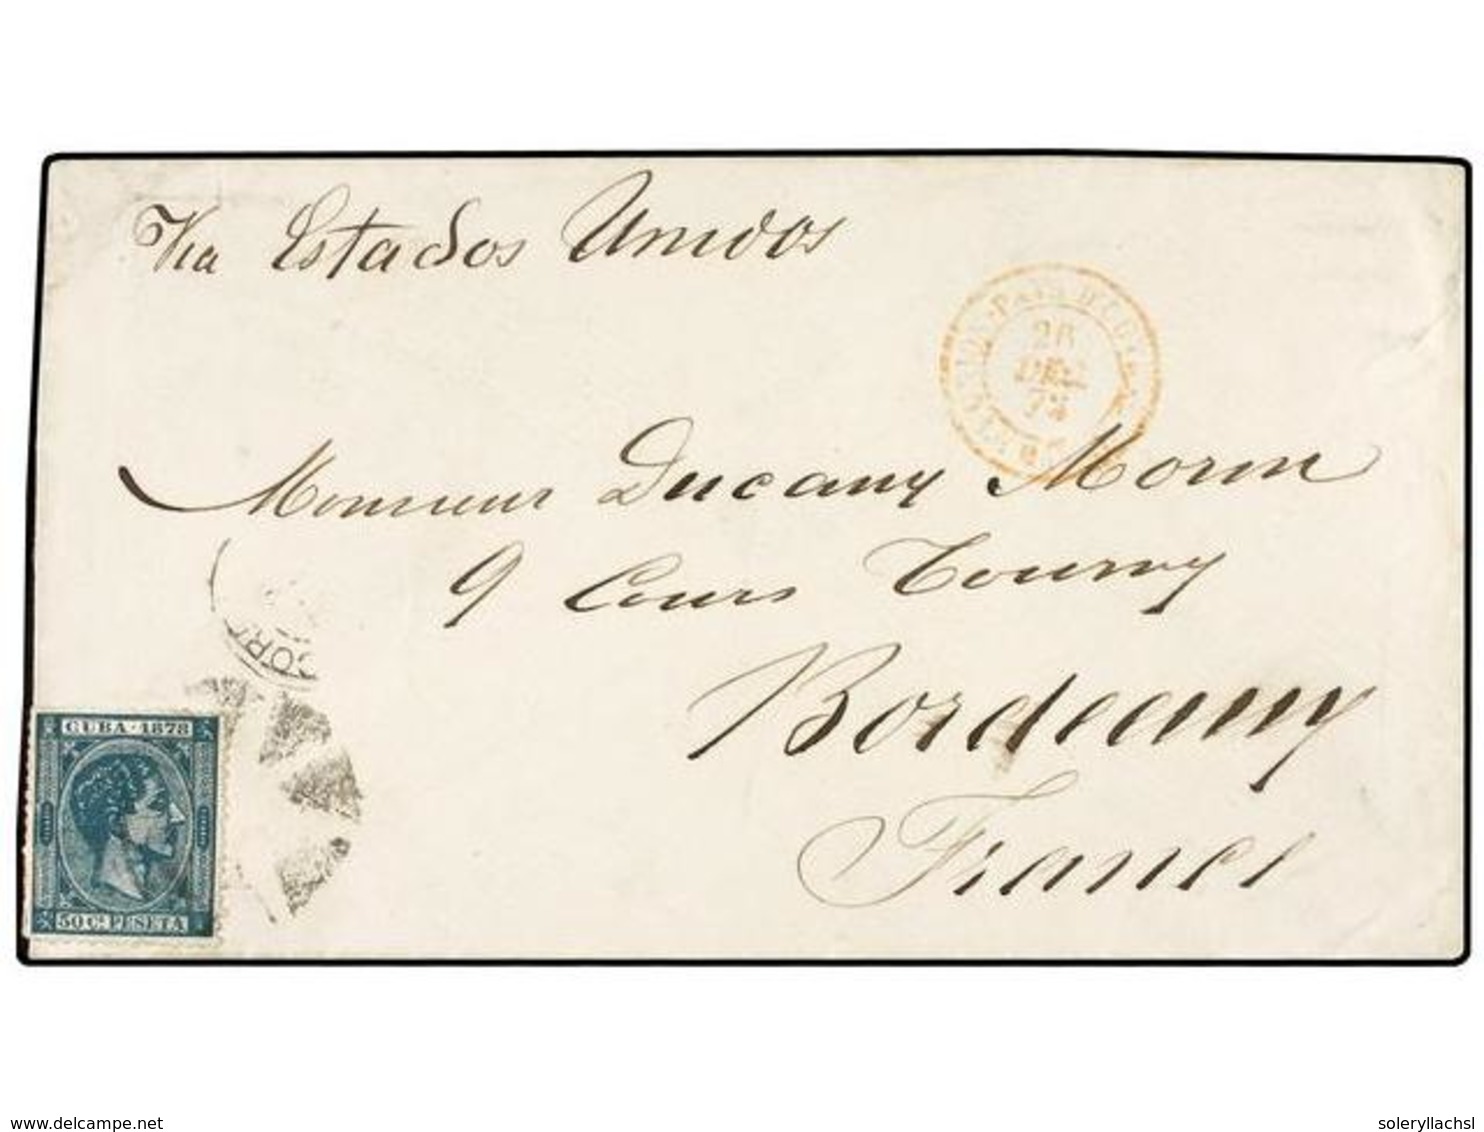 Via Estados Unidos
26
DEC
Monsieur Ducauny Morin
9 Cours Tourny
Bordeaux
France
CORR
CUBA · 1878
50 Cs PESETA
www.delcampe.net
soleryllachsl